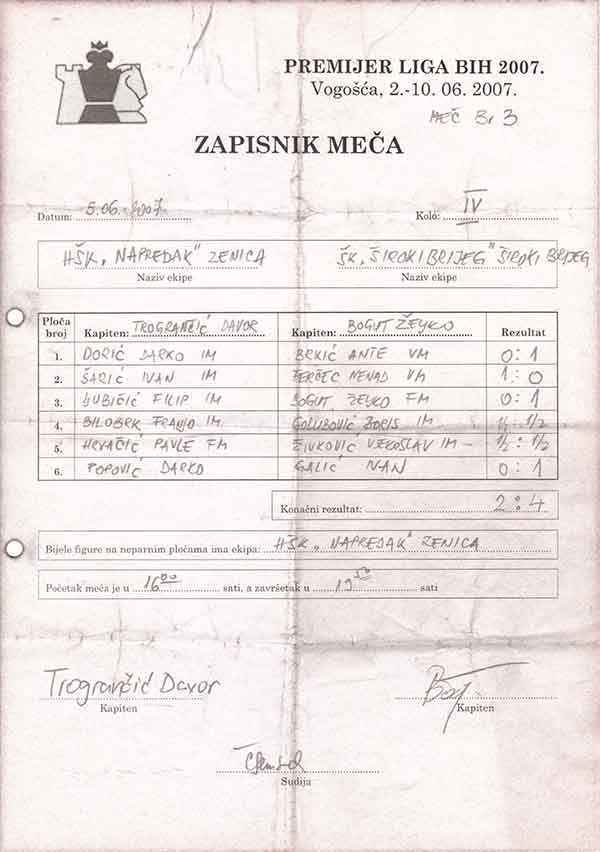 PREMIJER LIGA BIH 2007.
Vogošća, 2.-10. 06. 2007.
MEČ Br 3
ZAPISNIK MEČA
Datum: 5.06.2007 Kolo: IV
HŠK „NAPREDAK" ZENICA ŠK „ŠIROKI BRIJEG" ŠIROKI BRIJEG
Naziv ekipe Naziv ekipe
Ploča broj Kapiten: TROGRANČIĆ DAVOR Kapiten: BOGUT ŽELJKO Rezultat
1. DORIĆ DARKO IM BRKIĆ ANTE VM 0:1
2. ŠARIĆ IVAN IM FERČEC NENAD VM 1:0
3. LJUBIČIĆ FILIP IM BOGUT ŽELJKO FM 0:1
4. BILOBRK FRANJO IM GOLUBOVIĆ BORIS IM ½:½
5. HRVAČIĆ PAVLE FM ŽIVKOVIĆ VJEKOSLAV IM ½:½
6. POPOVIĆ DARKO GALIĆ IVAN 0:1
Konačni rezultat: 2:4
Bijele figure na neparnim pločama ima ekipa: HŠK „NAPREDAK" ZENICA
Početak meča je u 16⁰⁰ sati, a završetak u 19 sati
Trogrančić Davor
Kapiten Kapiten
Sudija